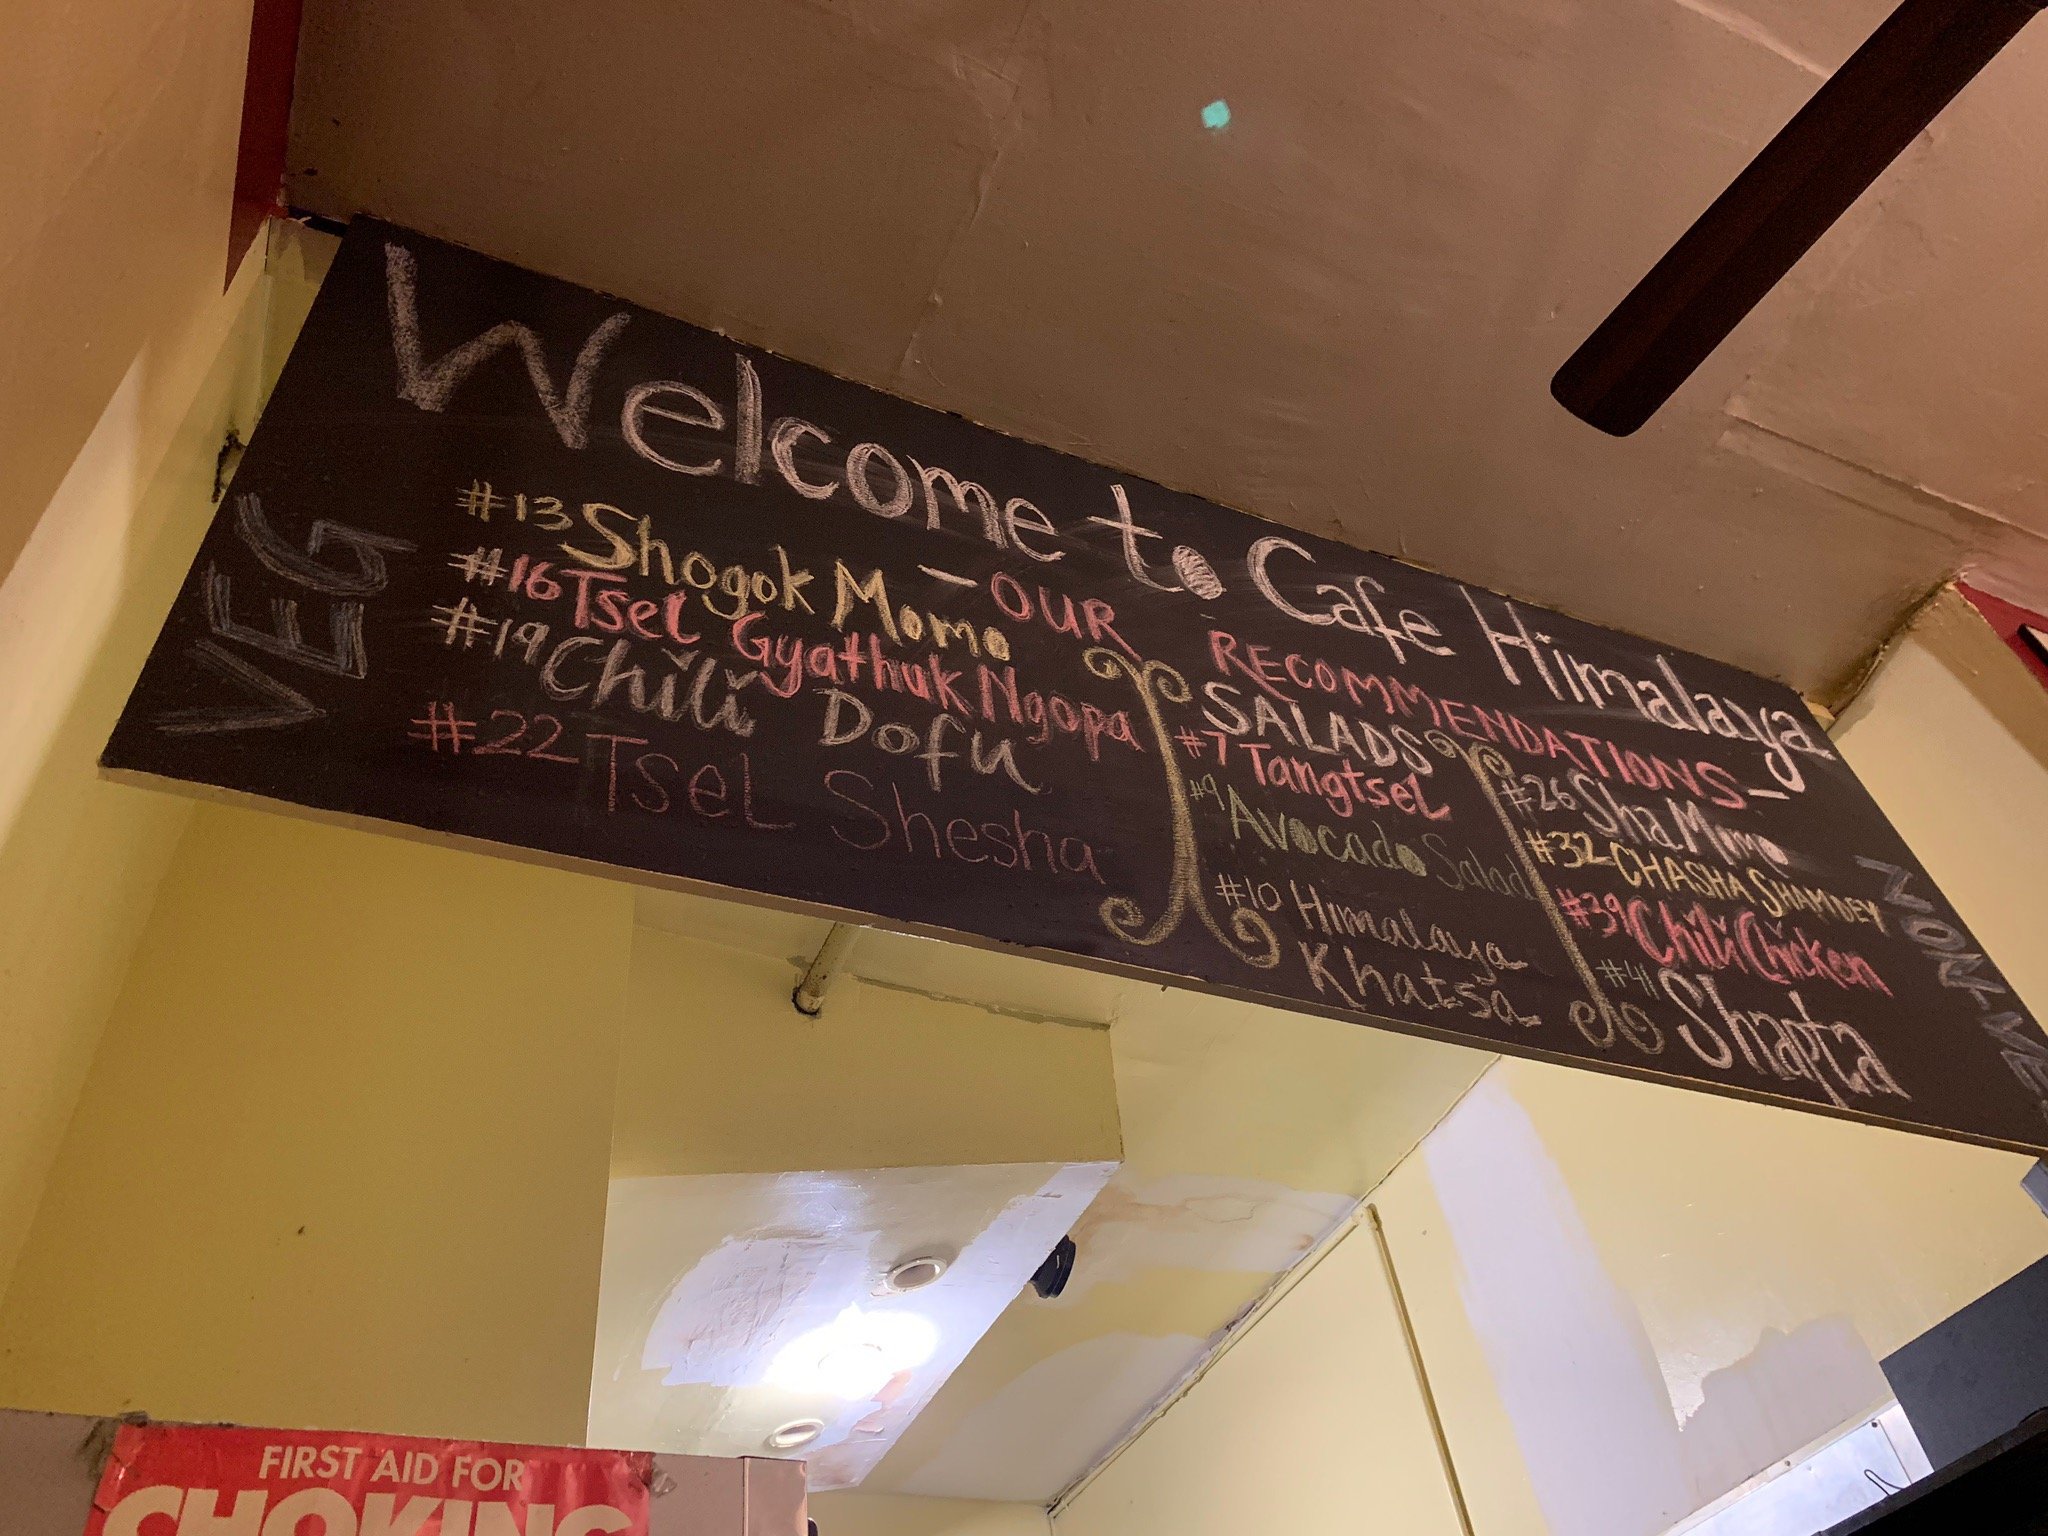 Welcome to Cafe Himalaya
- OUR RECOMMENDATIONS -
VEG
#13 Shogok Momo
#16 Tsel Gyathuk Ngopa
#19 Chili Dofu
#22 Tsel Shesha
SALADS
#7 Tangtsel
#9 Avocado Salad
#10 Himalaya
Khatsa
NON-VE
#26 Sha Momo
#32 CHASHA SHAMDEY
#39 Chili Chicken
#41 Shapta
FIRST AID FOR
CHOKING